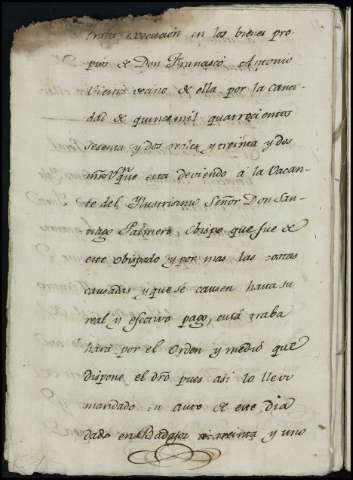 traba execucion en los bienes pro-
pios de Don Francisco Antonio
vecino de ella por la canti-
dad de quince mil quatrocientos
sesenta y dos reales y treinta y dos
que está deviendo à la Vacan-
te del Illustrisimo Señor Don San-
tiago Palmero, Obispo que fue de
este obispado y por mas las costas
causadas y que se causen hasta su
real y efectivo pago, cuia traba
hará por el Orden y medio que
dispone el dro, pues asi lo llevo
mandado en auto de este Dia
dado en Badajoz à treinta y uno